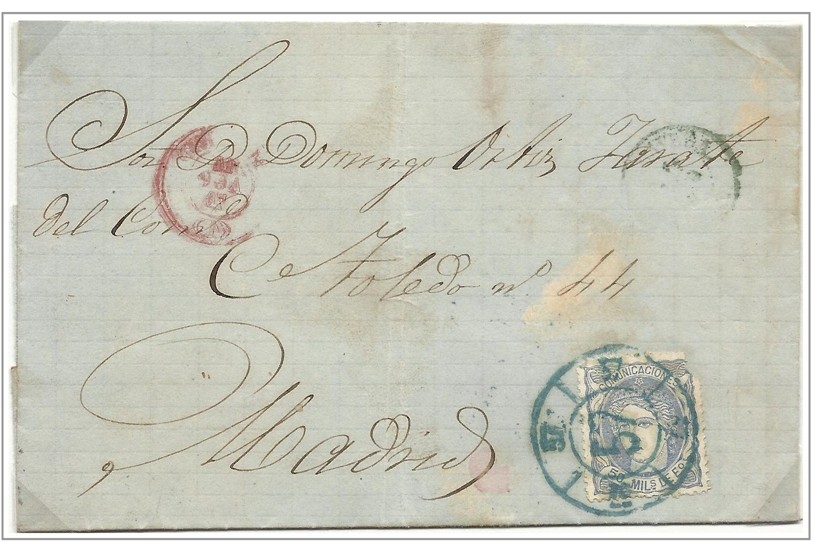 Sor. D. Domingo Ortiz Zarate
del Comº
C. Toledo nº 44
Madrid
COMUNICACIONES
50 MILS DE E
57